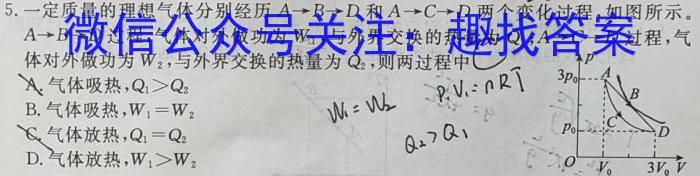 5. 一定质量的理想气体分别经历 A→B→D 和 A→C→D 两个变化过程,如图所示。
A→B 过程,气体对外做功为 W 与外界交换的热量为 Q 过程,气
微信公众号关注:趣找答案
体对外做功为 W₂,与外界交换的热量为 Q₂,则两过程中
A. 气体吸热,Q₁>Q₂
B. 气体吸热,W₁=W₂
C. 气体放热,Q₁=Q₂
D. 气体放热,W₁>W₂
W₁=W₂
P₁V₁=nRT
Q₂>Q₁
p
3p₀ A
B
C
p₀ D
O V₀ 3V₀ V